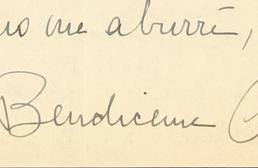 no me aburré,
Bendiceme